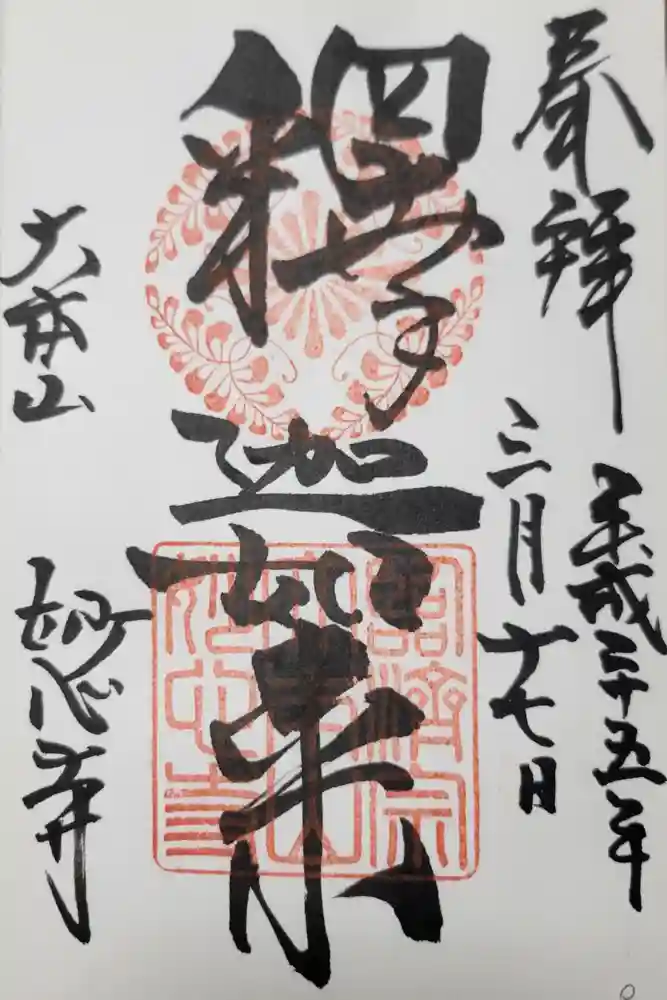 奉拝
平成二十五年
三月十七日
釋迦如来
大本山
妙心寺
臨済宗
大本山
妙心寺